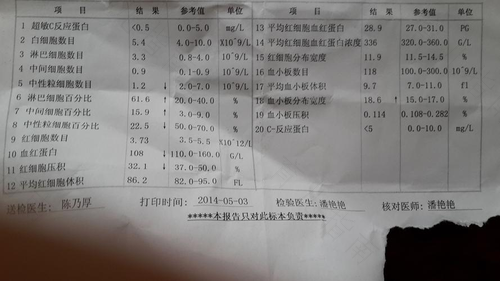 项 目 结 果 参考值 单位 项 目 结 果 参考值 单位
1 超敏C反应蛋白 <0.5 0.0-5.0 mg/L 13 平均红细胞血红蛋白 28.9 27.0-31.0 PG
2 白细胞数目 5.4 4.0-10.0 X10^9/L 14 平均红细胞血红蛋白浓度 336 320.0-360.0 G/L
3 淋巴细胞数目 3.3 0.8-4.0 10^9/L 15 红细胞分布宽度 11.9 11.5-14.5 %
4 中间细胞数目 0.9 0.1-0.9 10^9/L 16 血小板数目 118 100.0-300.0 10^9/L
5 中性粒细胞数目 1.2 ↓ 2.0-7.0 10^9/L 17 平均血小板体积 9.7 7.0-11.0 fl
6 淋巴细胞百分比 61.6 ↑ 20.0-40.0 % 18 血小板分布宽度 18.6 ↑ 15.0-17.0 %
7 中间细胞百分比 15.9 ↑ 3.0-9.0 % 19 血小板压积 0.114 0.108-0.282 %
8 中性粒细胞百分比 22.5 ↓ 50.0-70.0 % 20 C-反应蛋白 <5 0.0-10.0 mg/L
9 红细胞数目 3.73 3.5-5.5 X10^12/L
10 血红蛋白 108 ↓ 110.0-160.0 G/L
11 红细胞压积 32.1 ↓ 37.0-50.0 %
12 平均红细胞体积 86.2 82.0-95.0 FL
送检医生: 陈乃厚 打印时间: 2014-05-03 检验医生: 潘艳艳 核对医师: 潘艳艳
*****本报告只对此标本负责*****